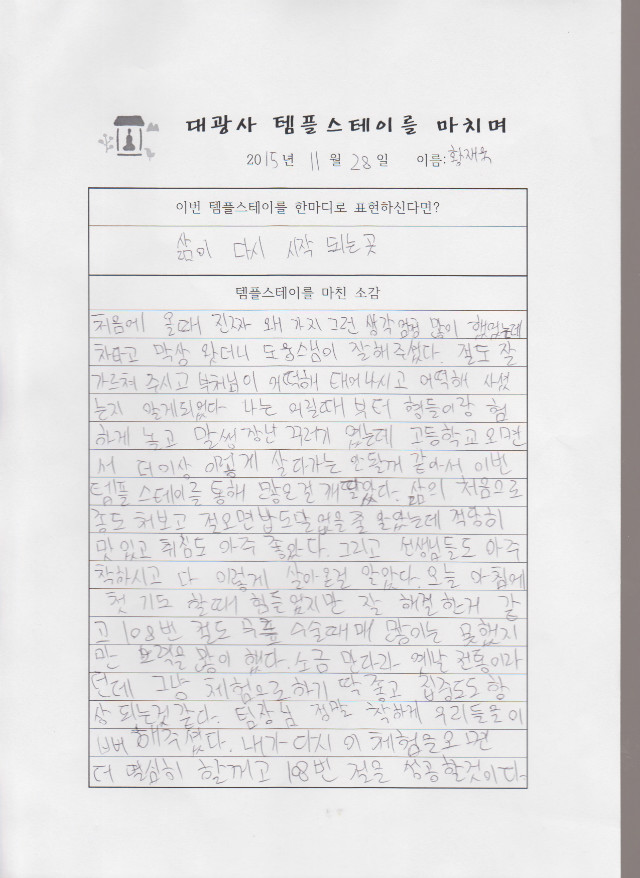 대광사 템플스테이를 마치며
2015년 11월 28일 이름: 황재욱
이번 템플스테이를 한마디로 표현하신다면?
삶이 다시 시작 되는곳
템플스테이를 마친 소감
처음에 올때 진짜 왜 가지 그런 생각 많이 했었는데
차타고 막상 왔더니 도움스님이 잘해주셨다. 절도 잘
가르쳐 주시고 부처님이 어떡해 태어나시고 어떡해 사셨
는지 알게되었다. 나는 어릴때부터 형들이랑 험
하게 놀고 말썽 장난 꾸러기 였는데 고등학교 오면
서 더이상 이렇게 살다가는 안될꺼 같아서 이번
템플스테이를 통해 많은걸 깨달았다. 삶의 처음으로
종도 쳐보고 절오면 밥도맛 없을줄 알았는데 적당히
맛있고 취침도 아주 좋았다. 그리고 선생님들도 아주
착하시고 다 이렇게 살아온걸 알았다. 오늘 아침에
첫 기도 할때 힘들었지만 잘 해결한거 같
고 108번 절도 무릎 수술때매 많이는 못했지
만 노력을 많이 했다. 소금 만다라 옛날 전통이라
던데 그냥 체험으로하기 딱좋고 집중도도 향
상 되는것 같다. 팀장님 정말 착하게 우리들을 이
해주셨다. 내가 다시 이 체험을 오면
더 열심히 할꺼고 108번 절을 성공할것이다.